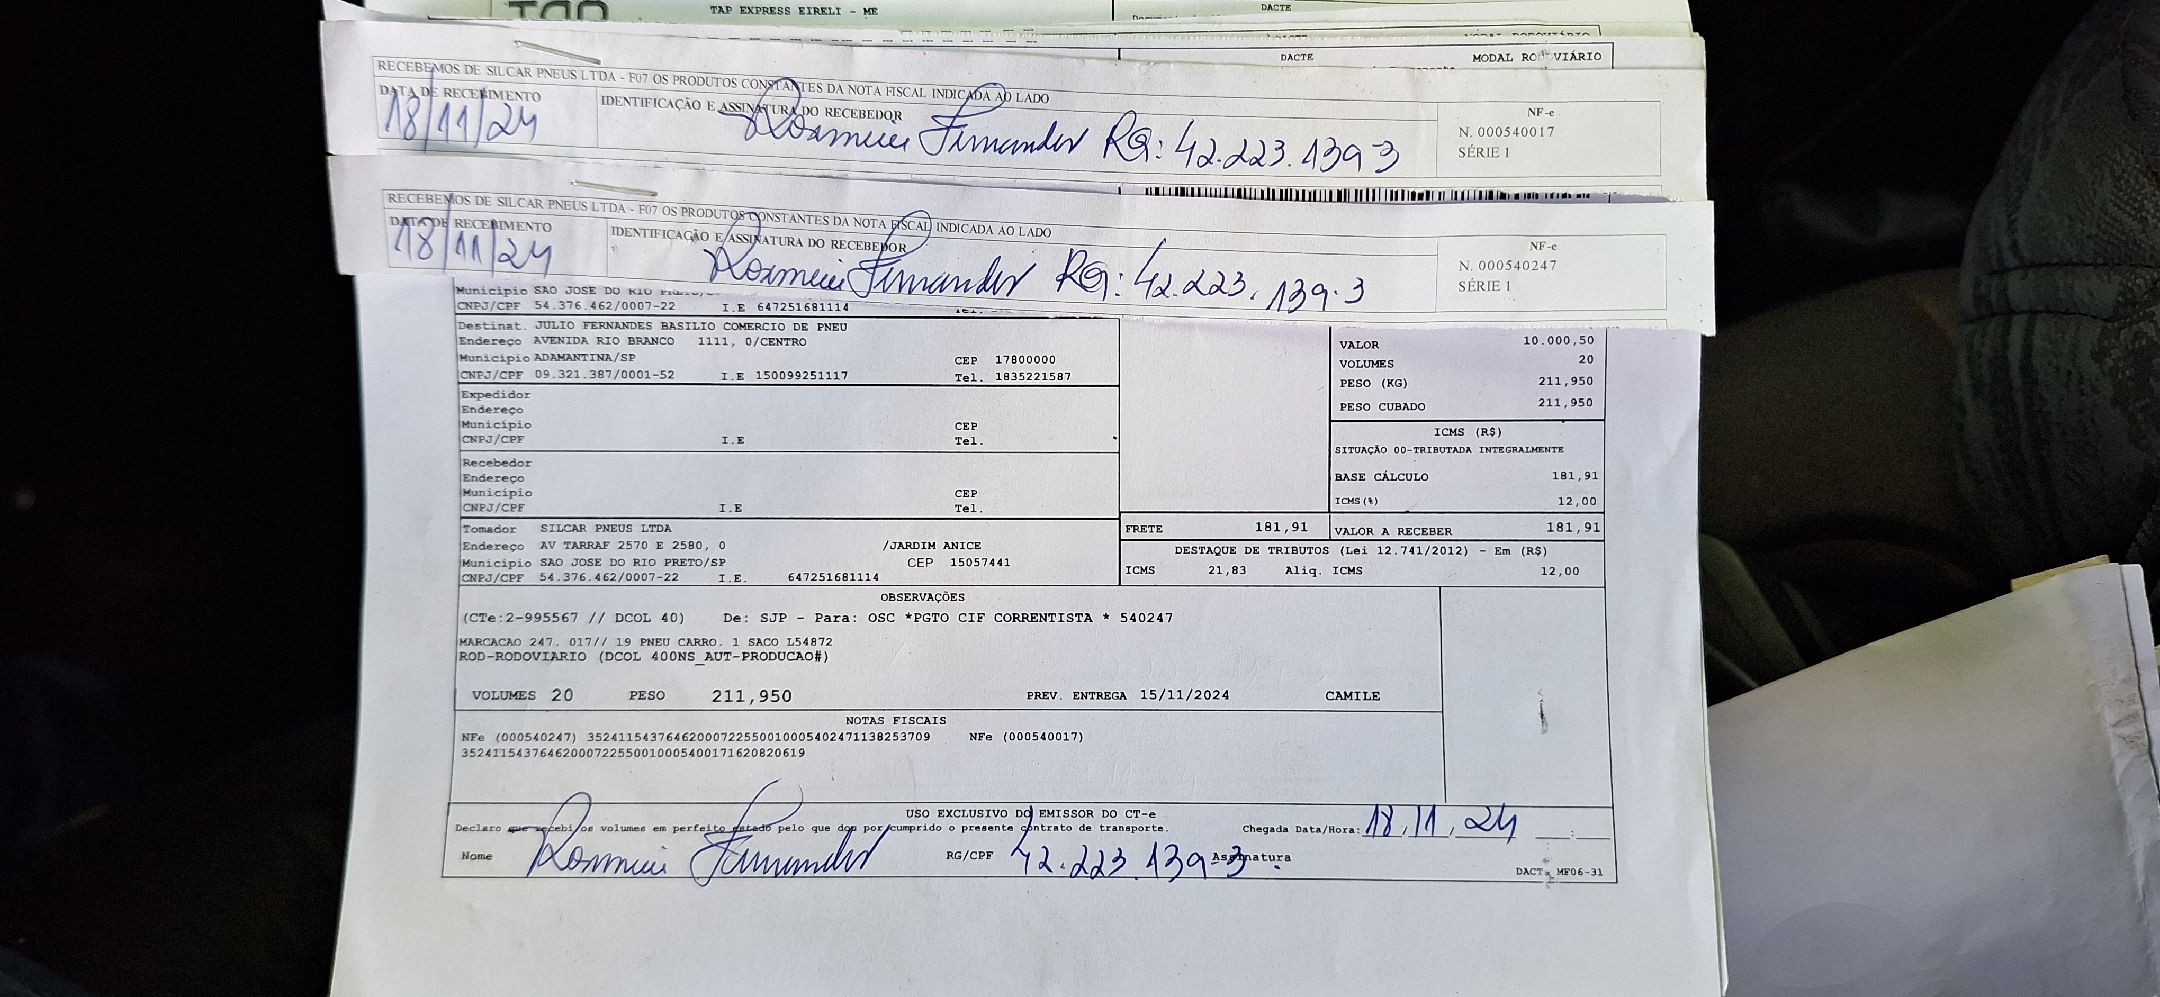 TAP EXPRESS EIRELI - ME
DACTE
DACTE
MODAL RODOVIÁRIO
RECEBEMOS DE SILCAR PNEUS LTDA - F07 OS PRODUTOS CONSTANTES DA NOTA FISCAL INDICADA AO LADO
DATA DE RECEBIMENTO
IDENTIFICAÇÃO E ASSINATURA DO RECEBEDOR
18/11/24
Fernandes RG: 42.223.139-3
NF-e
N. 000540017
SÉRIE 1
RECEBEMOS DE SILCAR PNEUS LTDA - F07 OS PRODUTOS CONSTANTES DA NOTA FISCAL INDICADA AO LADO
DATA DE RECEBIMENTO
IDENTIFICAÇÃO E ASSINATURA DO RECEBEDOR
18/11/24
Fernandes RG: 42.223.139-3
NF-e
N. 000540247
SÉRIE 1
Município SAO JOSE DO RIO
CNPJ/CPF 54.376.462/0007-22 I.E 647251681114
Destinat. JULIO FERNANDES BASILIO COMERCIO DE PNEU
Endereço AVENIDA RIO BRANCO 1111, 0/CENTRO
Município ADAMANTINA/SP CEP 17800000
CNPJ/CPF 09.321.387/0001-52 I.E 150099251117 Tel. 1835221587
Expedidor
Endereço
Município CEP
CNPJ/CPF I.E Tel.
Recebedor
Endereço
Município CEP
CNPJ/CPF I.E Tel.
Tomador SILCAR PNEUS LTDA
Endereço AV TARRAF 2570 E 2580, 0 /JARDIM ANICE
Município SAO JOSE DO RIO PRETO/SP CEP 15057441
CNPJ/CPF 54.376.462/0007-22 I.E. 647251681114
VALOR 10.000,50
VOLUMES 20
PESO (KG) 211,950
PESO CUBADO 211,950
ICMS (R$)
SITUAÇÃO 00-TRIBUTADA INTEGRALMENTE
BASE CÁLCULO 181,91
ICMS(%) 12,00
FRETE 181,91 VALOR A RECEBER 181,91
DESTAQUE DE TRIBUTOS (Lei 12.741/2012) - Em (R$)
ICMS 21,83 Aliq. ICMS 12,00
OBSERVAÇÕES
(CTe:2-995567 // DCOL 40) De: SJP - Para: OSC *PGTO CIF CORRENTISTA * 540247
MARCACAO 247. 017// 19 PNEU CARRO. 1 SACO L54872
ROD-RODOVIARIO (DCOL 400NS_AUT-PRODUCAO#)
VOLUMES 20 PESO 211,950 PREV. ENTREGA 15/11/2024 CAMILE
NOTAS FISCAIS
NFe (000540247) 35241154376462000722550010005402471138253709 NFe (000540017)
35241154376462000722550010005400171620820619
USO EXCLUSIVO DO EMISSOR DO CT-e
Declaro que recebi os volumes em perfeito estado pelo que dou por cumprido o presente contrato de transporte. Chegada Data/Hora: 18.11.24 __:__
Nome Fernandes RG/CPF 42.223.139-3 Assinatura
DACTe MF06-31